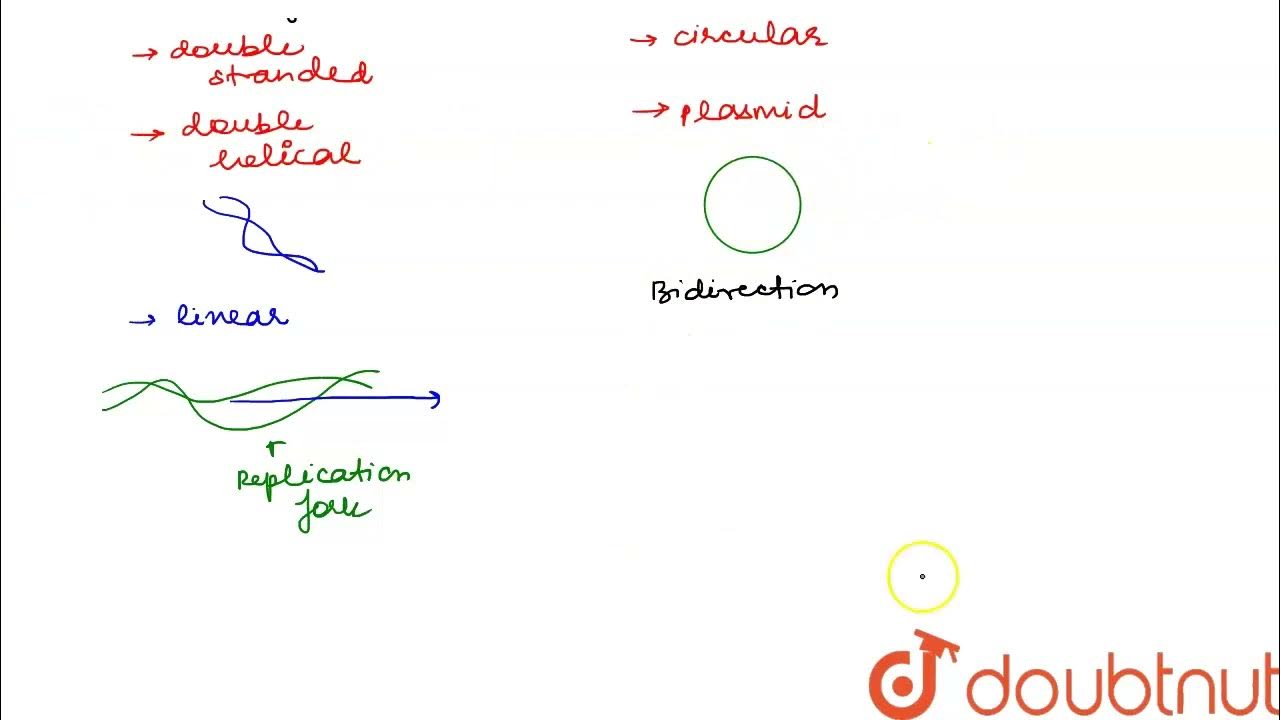 → double
stranded
→ double
helical
→ linear
Replication
fork
→ circular
→ plasmid
Bidirection
doubtnut